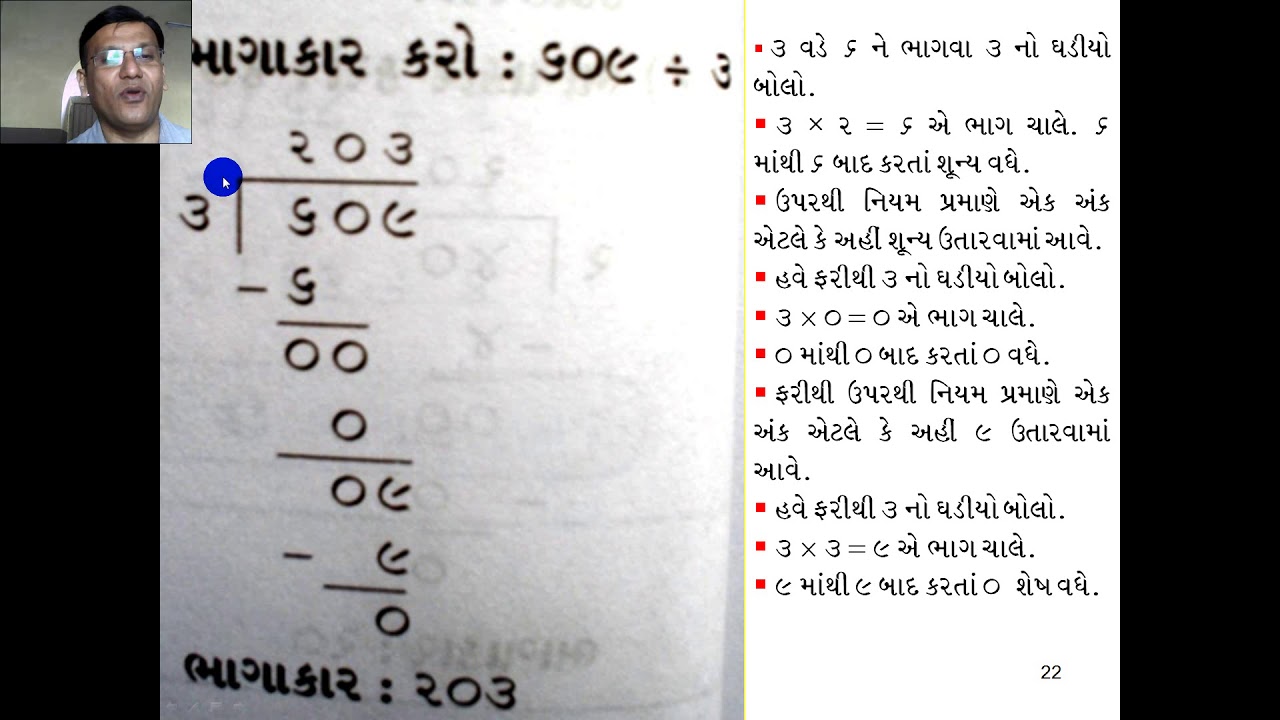 ભાગાકાર કરો : ૬૦૯ ÷ ૩
૨૦૩
૩ ૬૦૯
- ૬
૦૦
૦
૦૯
- ૯
૦
ભાગાકાર : ૨૦૩
▪ ૩ વડે ૬ ને ભાગવા ૩ નો ઘડીયો
બોલો.
▪ ૩ × ૨ = ૬ એ ભાગ ચાલે. ૬
માંથી ૬ બાદ કરતાં શૂન્ય વધે.
▪ ઉપરથી નિયમ પ્રમાણે એક અંક
એટલે કે અહીં શૂન્ય ઉતારવામાં આવે.
▪ હવે ફરીથી ૩ નો ઘડીયો બોલો.
▪ ૩ × ૦ = ૦ એ ભાગ ચાલે.
▪ ૦ માંથી ૦ બાદ કરતાં ૦ વધે.
▪ ફરીથી ઉપરથી નિયમ પ્રમાણે એક
અંક એટલે કે અહીં ૯ ઉતારવામાં
આવે.
▪ હવે ફરીથી ૩ નો ઘડીયો બોલો.
▪ ૩ × ૩ = ૯ એ ભાગ ચાલે.
▪ ૯ માંથી ૯ બાદ કરતાં ૦ શેષ વધે.
22